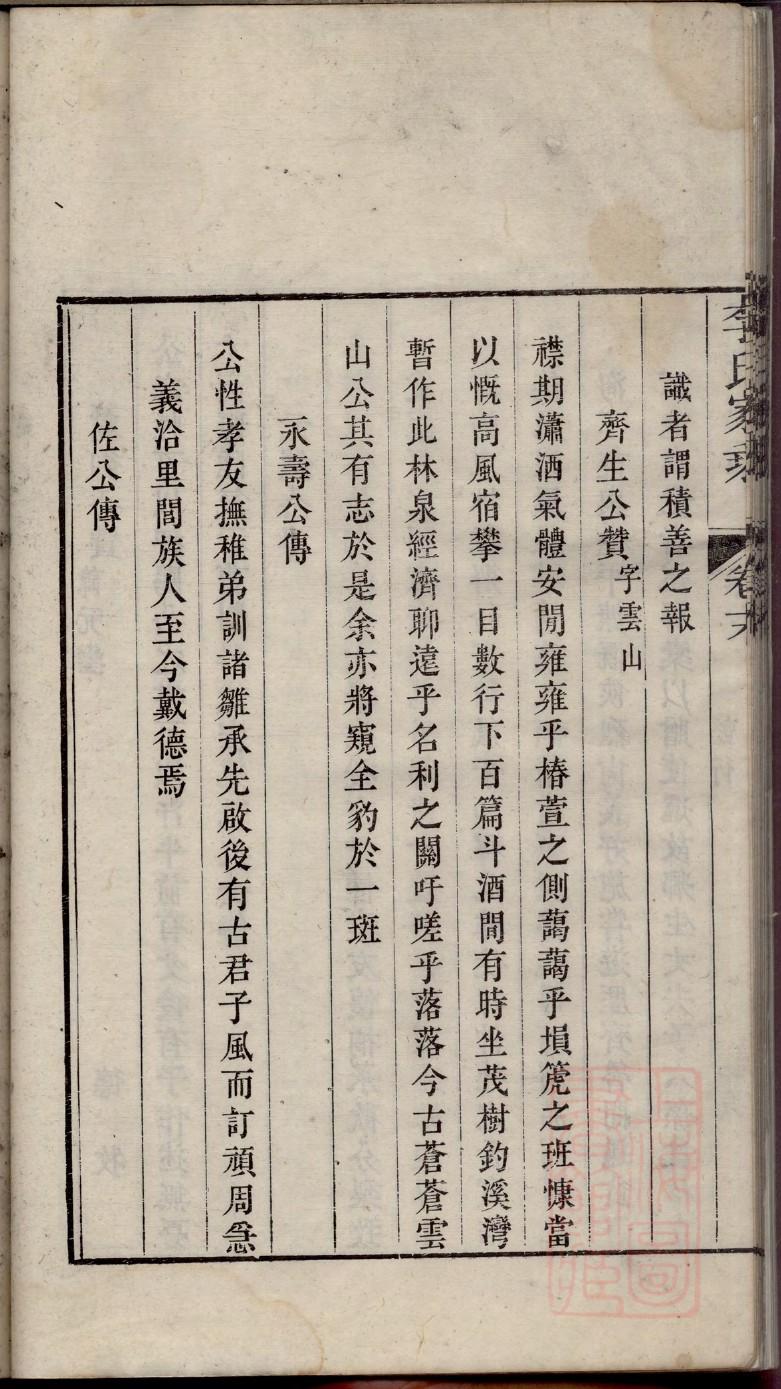 李氏家乘 卷六
識者謂積善之報
齊生公贊字雲山
襟期瀟洒氣體安閒雍雍乎椿萱之側藹藹乎塤箎之班慷當
以慨高風宿攀一目數行下百篇斗酒閒有時坐茂樹釣溪灣
暫作此林泉經濟聊遠乎名利之關吁嗟乎落落今古蒼蒼雲
山公其有志於是余亦將窺全豹於一斑
永壽公傳
公性孝友撫稚弟訓諸雛承先啟後有古君子風而訂頑周急
義洽里閭族人至今戴德焉
佐公傳